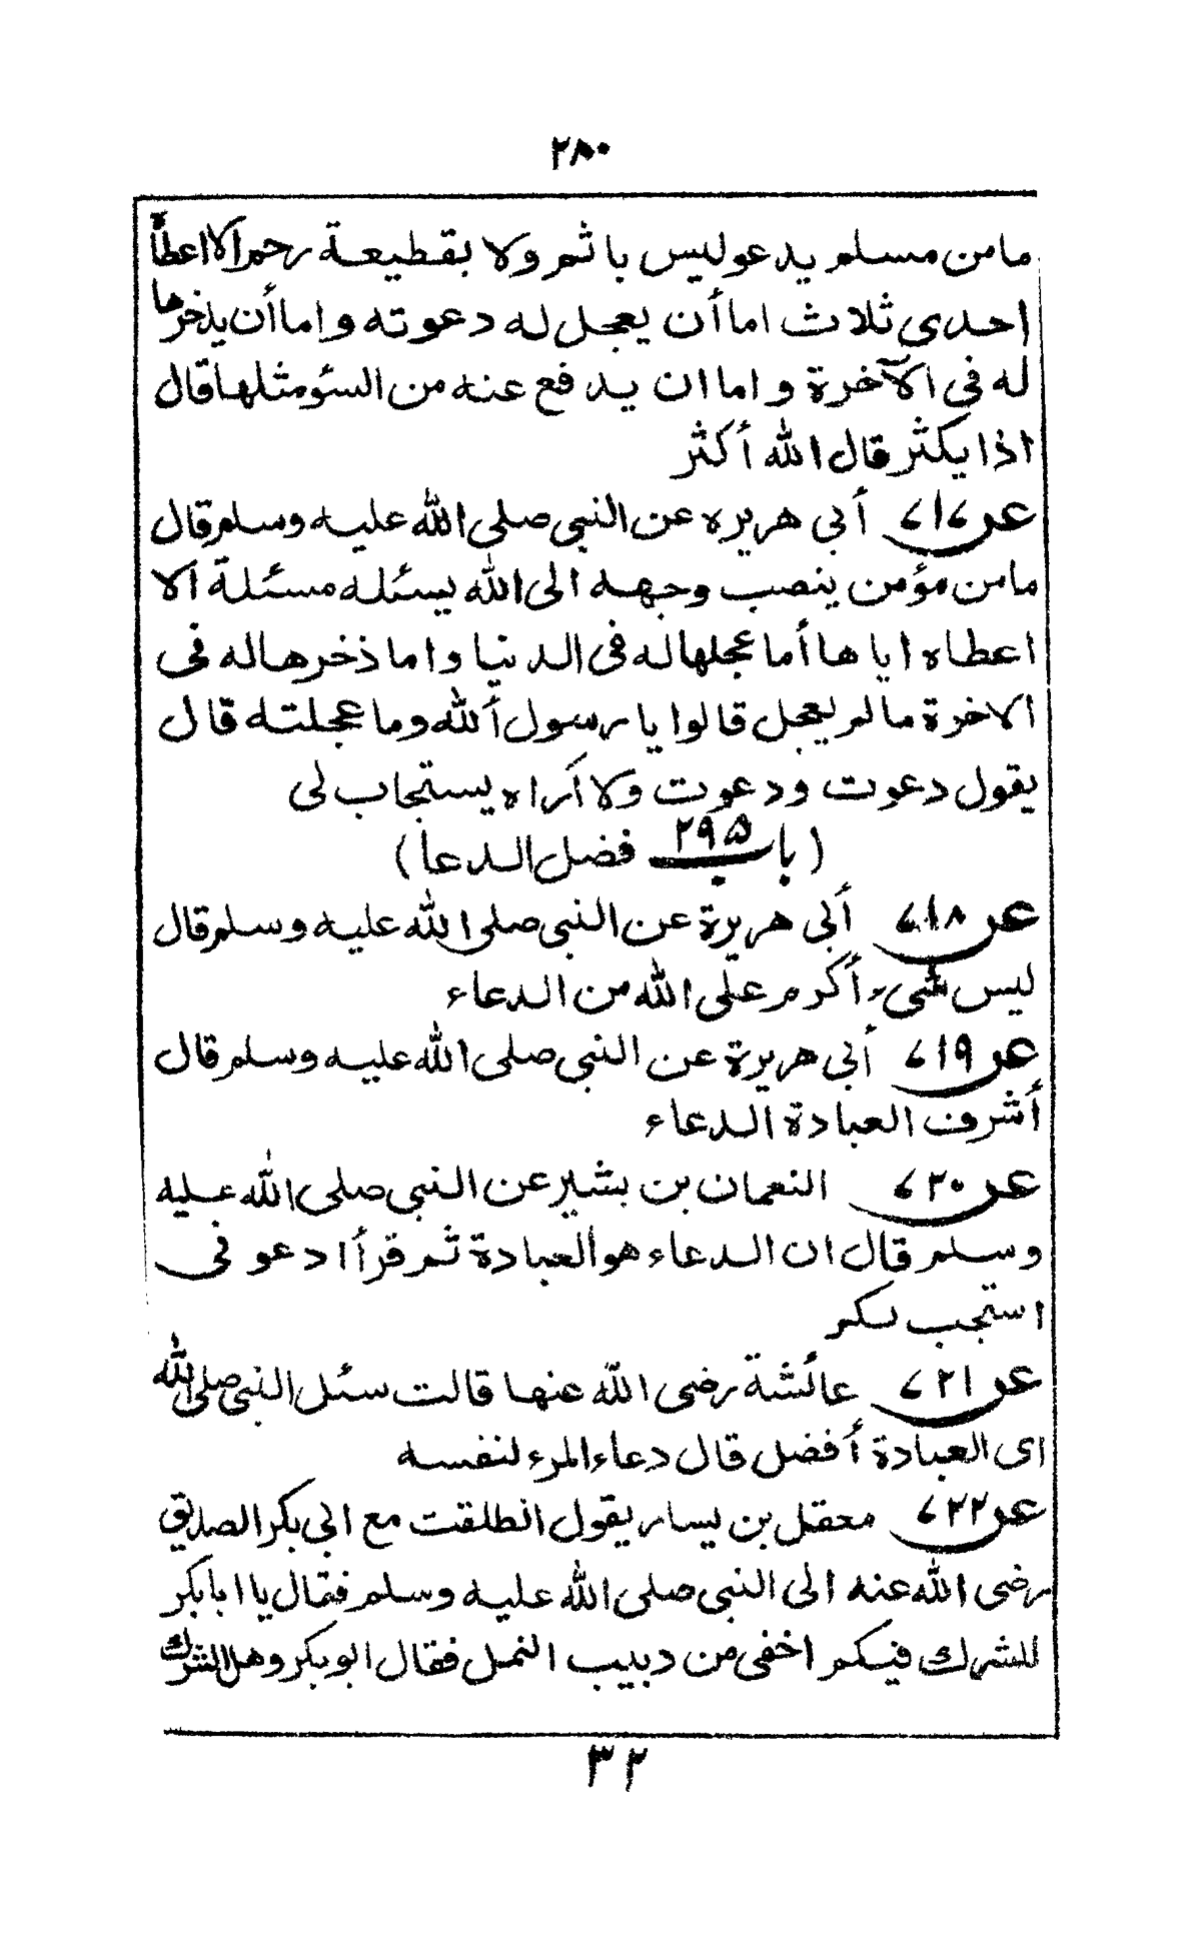 ٢٨٠
مامن مسلم يدعوليس باثم ولا بقطيعة رحم الا اعطاه
احدى ثلاث اما أن يعجل له دعوته واما أن يذخرها
له فى الآخرة واما ان يدفع عنه من السئو مثلها قال
اذا يكثر قال الله أكثر
عن ٧١٧ أبى هريره عن النبى صلى الله عليه وسلم قال
مامن مؤمن ينصب وجهه الى الله يسئله مسئلة الا
اعطاه اياها أما عجلها له فى الدنيا واما ذخرها له فى
الاخرة مالم يعجل قالوا يا رسول ألله وما عجلته قال
يقول دعوت ودعوت ولا أراه يستجاب لى
(باب ٢٩٥ فضل الدعا)
عن ٧١٨ أبى هريرة عن النبى صلى الله عليه وسلم قال
ليس شىء أكرم على الله من الدعاء
عن ٧١٩ أبى هريرة عن النبى صلى الله عليه وسلم قال
أشرف العبادة الدعاء
عن ٧٢٠ النعمان بن بشير عن النبى صلى الله عليه
وسلم قال ان الدعاء هو ألعبادة ثم قرأ ادعو فى
استجب لكم
عن ٧٢١ عائشة رضى الله عنها قالت سئل النبى صلى الله
اى العبادة أفضل قال دعاء المرء لنفسه
عن ٧٢٢ معقل بن يسار يقول انطلقت مع ابى بكر الصديق
رضى الله عنه الى النبى صلى الله عليه وسلم فقال يا ابا بكر
للشرك فيكم اخفى من دبيب النمل فقال ابو بكر وهل الشرك
٣٢